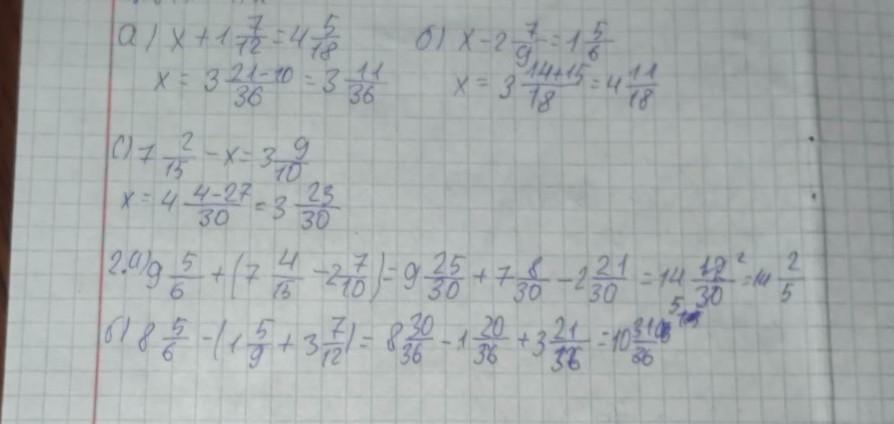 а) x + 1 7/12 = 4 5/18 б) x - 2 7/9 = 1 5/6
x = 3 21-10/36 = 3 11/36 x = 3 14+15/18 = 4 11/18
с) 7 2/15 - x = 3 9/10
x = 4 4-27/30 = 3 23/30
2.а) 9 5/6 + (7 4/15 - 2 7/10) = 9 25/30 + 7 8/30 - 2 21/30 = 14 12/30 = 14 2/5
б) 8 5/6 - (1 5/9 + 3 7/12) = 8 30/36 - 1 20/36 + 3 21/36 = 10 31/36